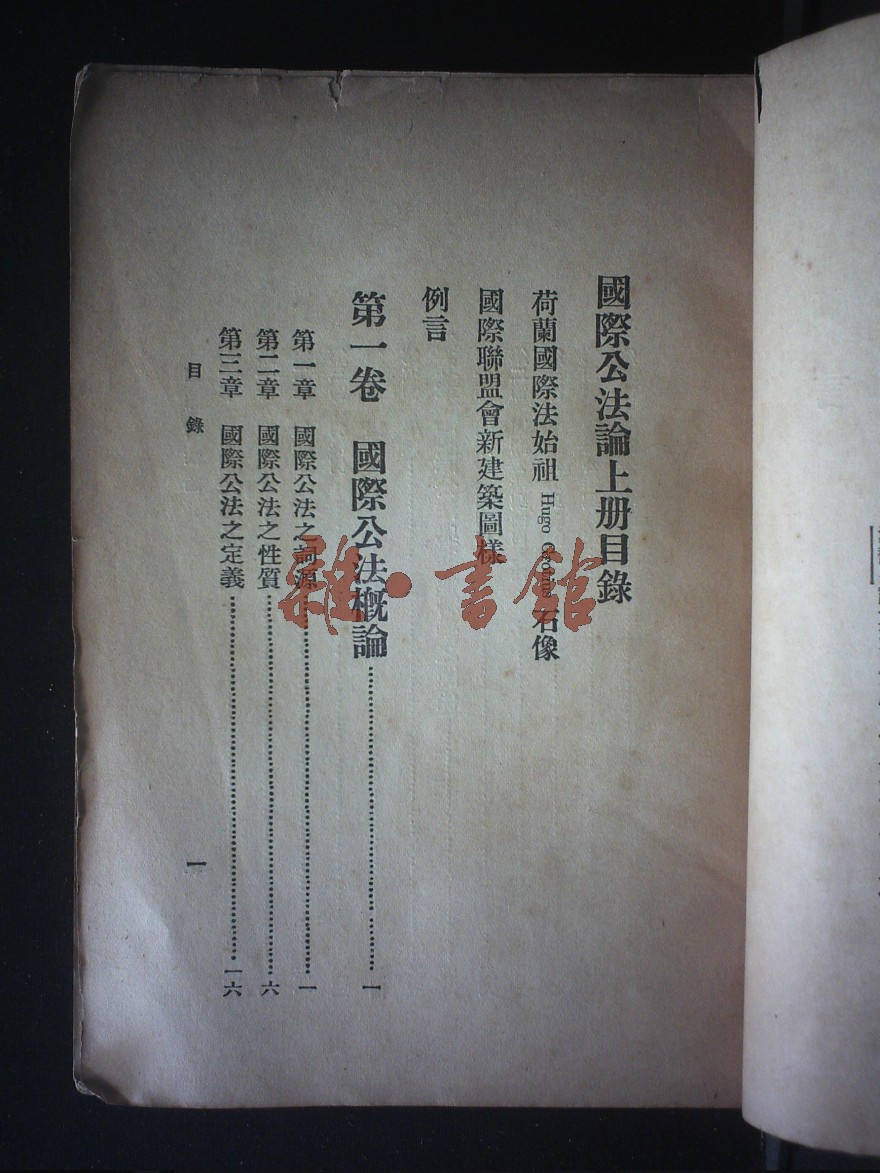 國際公法論上册目錄
荷蘭國際法始祖 Hugo Grotius 石像
國際聯盟會新建築圖樣
例言
第一卷 國際公法概論……一
第一章 國際公法之詞源……一
第二章 國際公法之性質……六
第三章 國際公法之定義……一六
目錄
一
雜·書館